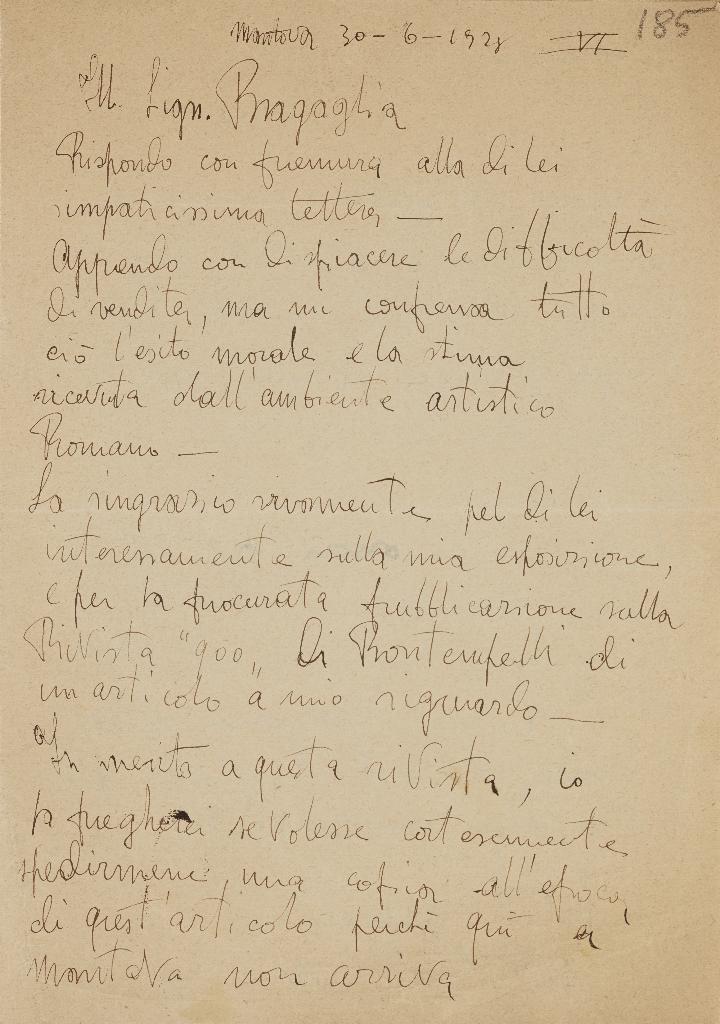 185
Mantova 30-6-1928 VI
Ill. Sign. Bragaglia
Rispondo con premura alla di lei
simpaticissima lettera —
Apprendo con dispiacere le difficoltà
di vendita, ma mi compensa tutto
ciò l'esito morale e la stima
ricevuta dall'ambiente artistico
Romano —
La ringrazio vivamente pel di lei
interessamente sulla mia esposizione,
e per la procurata pubblicazione sulla
Rivista "900" di Bontempelli di
un articolo a mio riguardo —
In merito a questa rivista, io
la pregherei se volesse cortesemente
spedirmene una copia all'epoca
di quest'articolo perchè qui a
Mantova non arriva